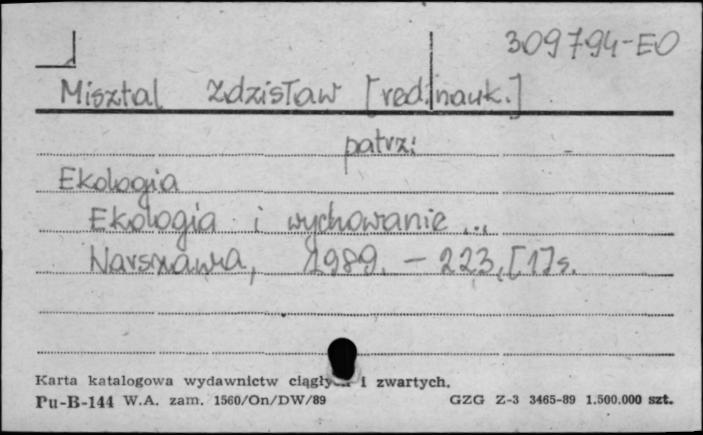 309794-EO
Misztal Zdzisław [red. nauk.]
patrz:
Ekologia
Ekologia i wychowanie ...
Warszawa, 1989. - 223, [1] s.
Karta katalogowa wydawnictw ciągłych i zwartych.
Pu-B-144 W.A. zam. 1560/On/DW/89 GZG Z-3 3465-89 1.500.000 szt.